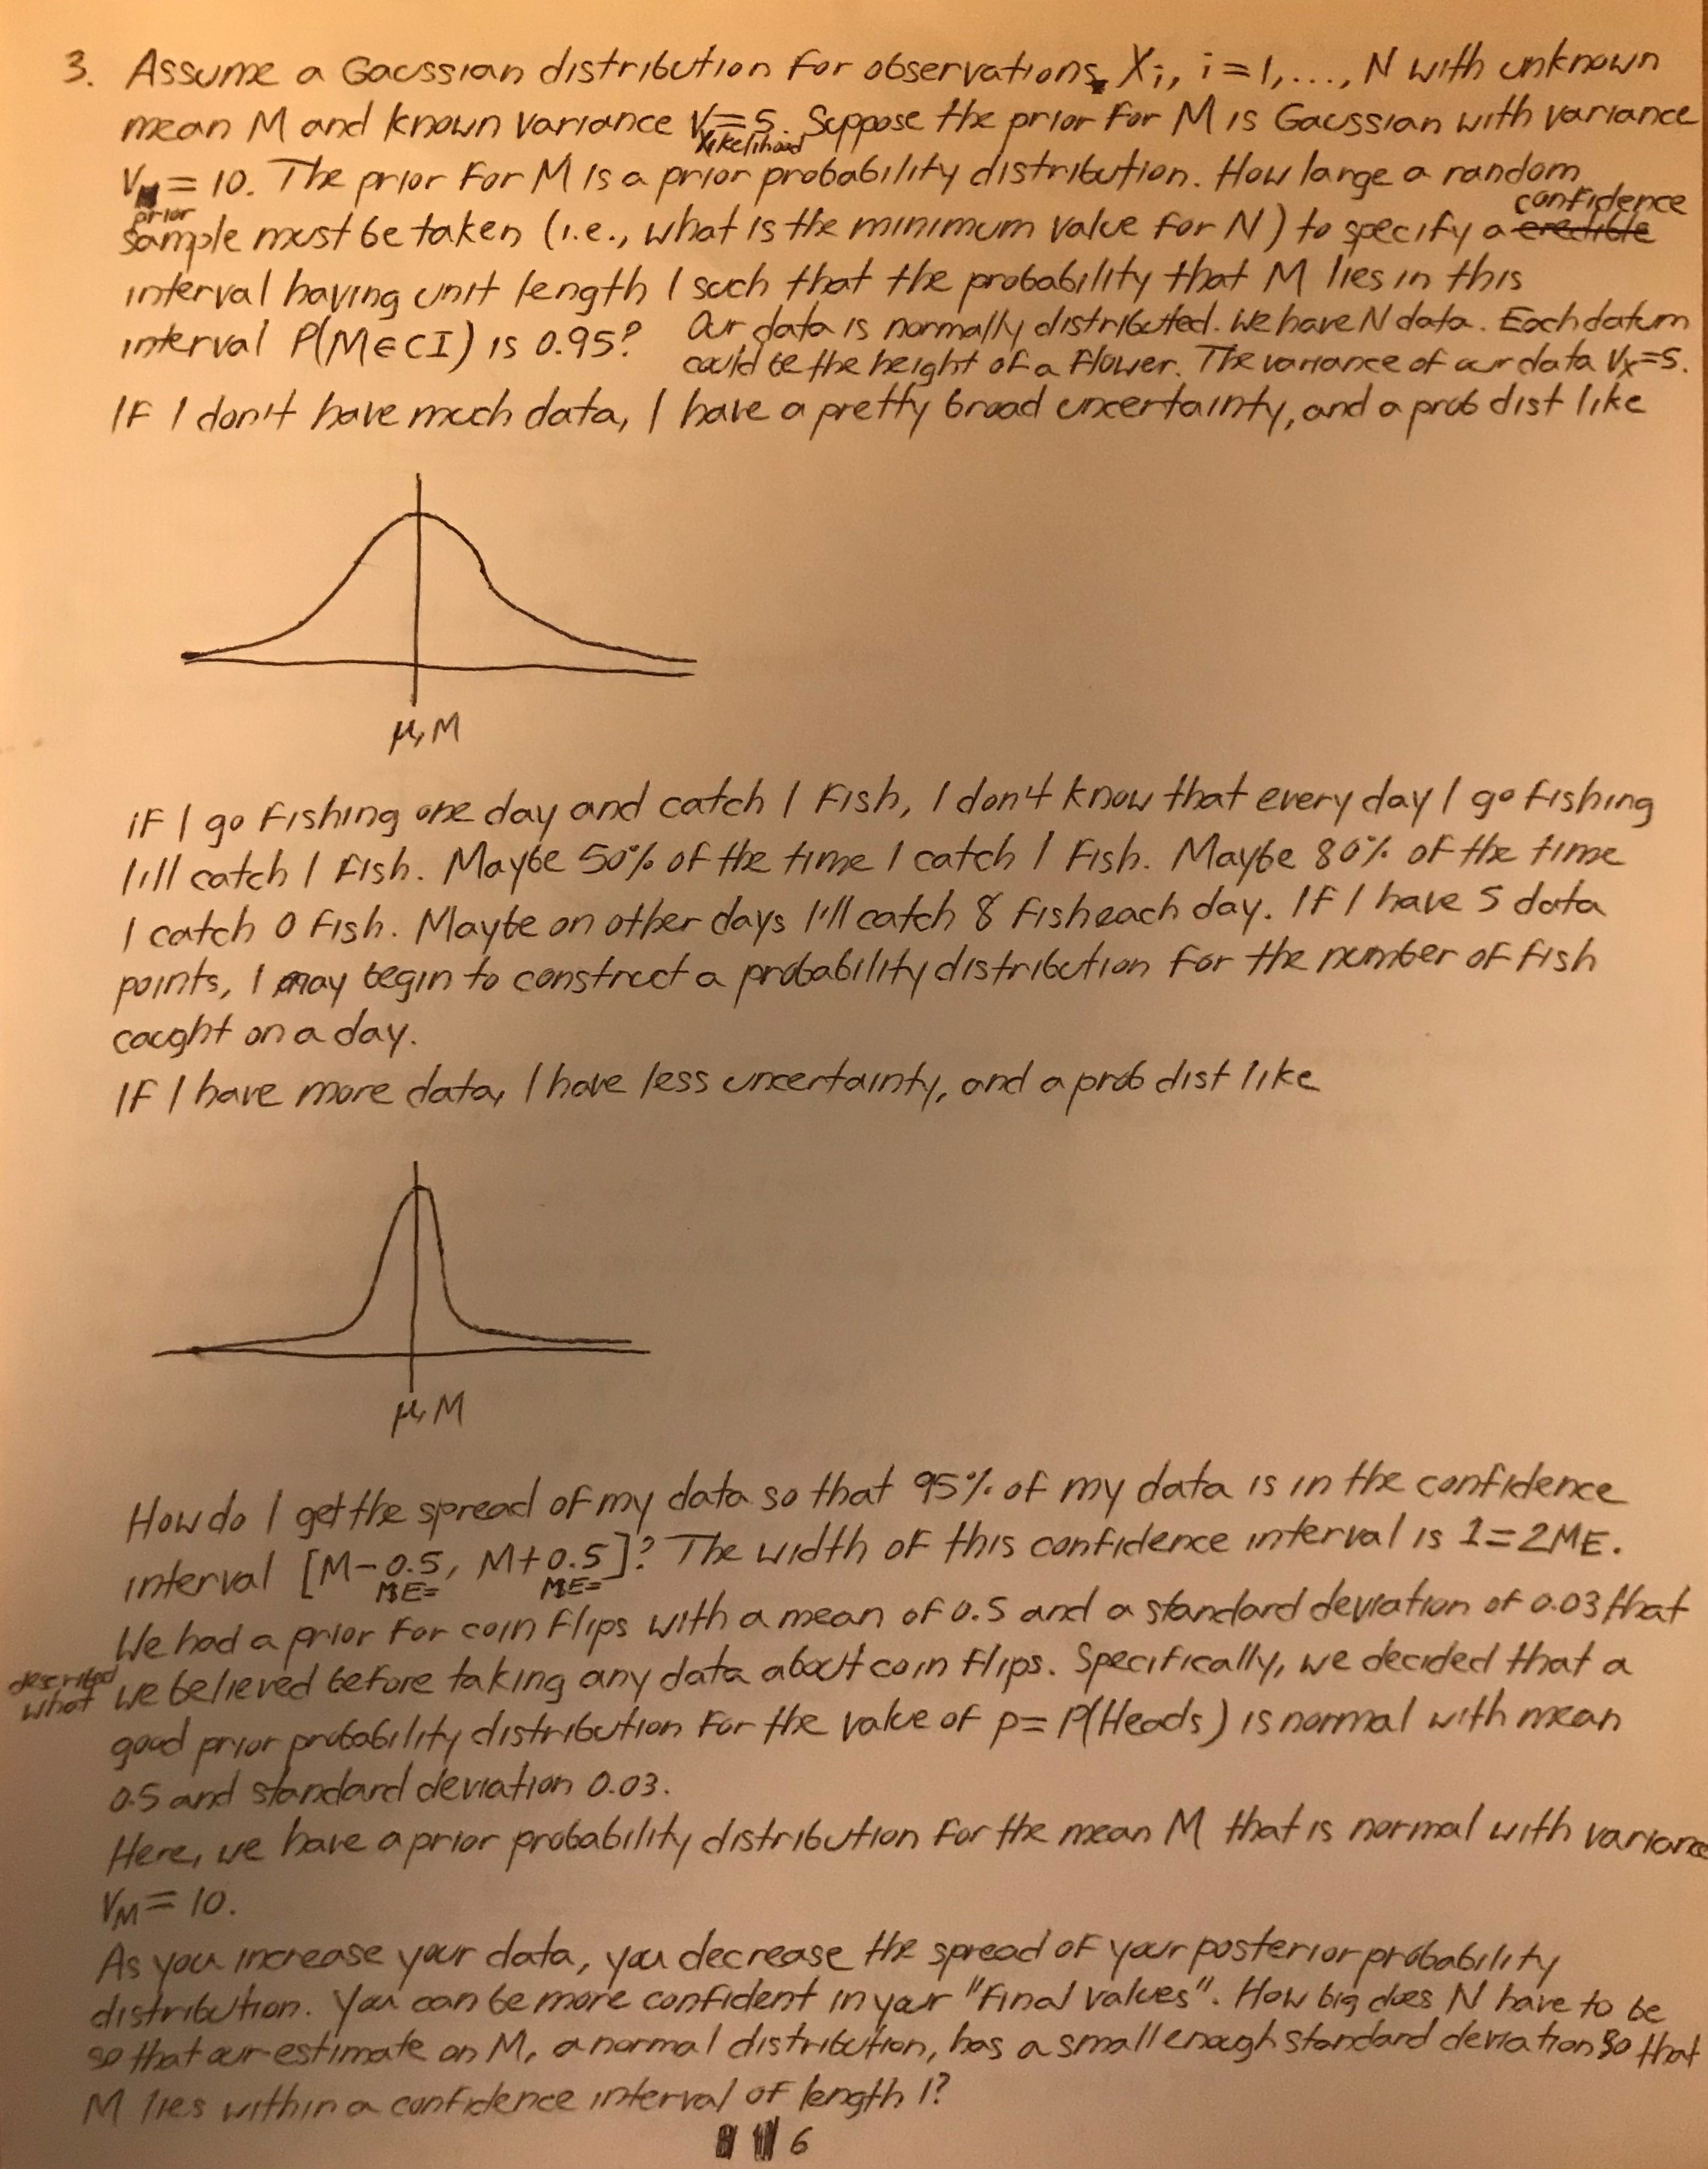 3. Assume a Gaussian distribution for observations, Xi, i=1,..., N with unknown
mean M and known variance V=5. Suppose the prior for M is Gaussian with variance
likelihood
VM=10. The prior for M is a prior probability distribution. How large a random
prior
confidence
sample must be taken (i.e., what is the minimum value for N) to specify a credible
interval having unit length 1 such that the probability that M lies in this
interval P(M∈CI) is 0.95? Our data is normally distributed. We have N data. Each datum
could be the height of a flower. The variance of our data Vx=5.
If I don't have much data, I have a pretty broad uncertainty, and a prob dist like
μ, M
if I go fishing one day and catch 1 fish, I don't know that every day I go fishing
I'll catch 1 fish. Maybe 50% of the time I catch 1 fish. Maybe 80% of the time
I catch 0 fish. Maybe on other days I'll catch 8 fish each day. If I have 5 data
points, I may begin to construct a probability distribution for the number of fish
caught on a day.
If I have more data, I have less uncertainty, and a prob dist like
μ, M
How do I get the spread of my data so that 95% of my data is in the confidence
interval [M-0.5, M+0.5]? The width of this confidence interval is 1=2ME.
ME= ME=
We had a prior for coin flips with a mean of 0.5 and a standard deviation of 0.03 that
described
what we believed before taking any data about coin flips. Specifically, we decided that a
good prior probability distribution for the value of p=P(Heads) is normal with mean
0.5 and standard deviation 0.03.
Here, we have a prior probability distribution for the mean M that is normal with variance
VM=10.
As you increase your data, you decrease the spread of your posterior probability
distribution. You can be more confident in your "final values". How big does N have to be
so that our estimate on M, a normal distribution, has a small enough standard deviation so that
M lies within a confidence interval of length 1?
6